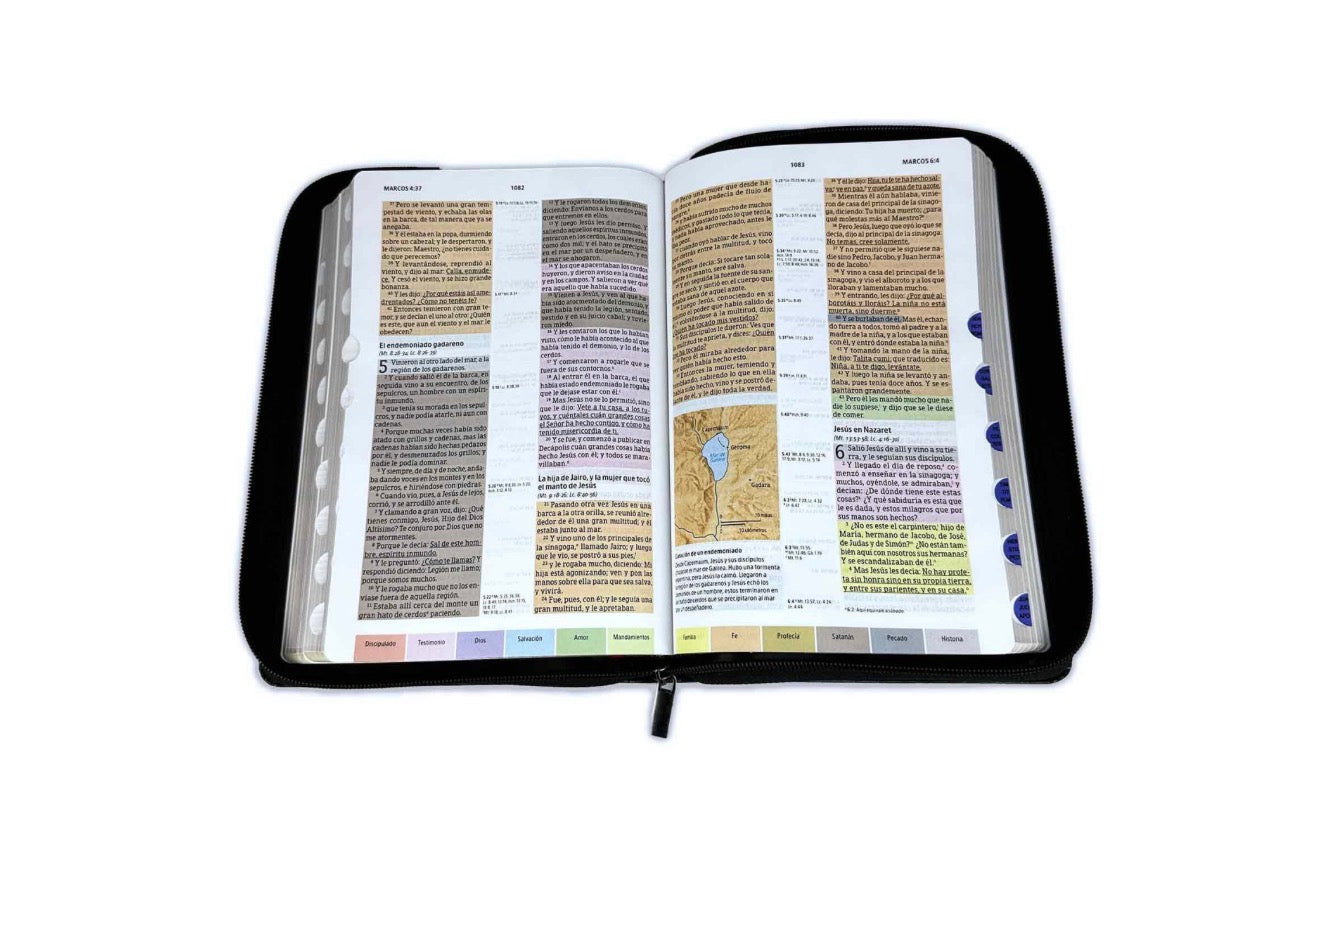 MARCOS 4:37
1082
37 Pero se levantó una gran tem-
pestad de viento, y echaba las olas
en la barca, de tal manera que ya se
anegaba.
38 Y él estaba en la popa, durmiendo
sobre un cabezal; y le despertaron, y
le dijeron: Maestro, ¿no tienes cuida-
do que perecemos?
39 Y levantándose, reprendió al
viento, y dijo al mar: Calla, enmude-
ce. Y cesó el viento, y se hizo grande
bonanza.
40 Y les dijo: ¿Por qué estáis así ame-
drentados? ¿Cómo no tenéis fe?
41 Entonces temieron con gran te-
mor, y se decían el uno al otro: ¿Quién
es éste, que aun el viento y el mar le
obedecen?
El endemoniado gadareno
(Mt. 8:28-34; Lc. 8:26-39)
5 Vinieron al otro lado del mar, a la
región de los gadarenos.
2 Y cuando salió él de la barca, en
seguida vino a su encuentro, de los
sepulcros, un hombre con un espíri-
tu inmundo,
3 que tenía su morada en los sepul-
cros, y nadie podía atarle, ni aun con
cadenas.
4 Porque muchas veces había sido
atado con grillos y cadenas, mas las
cadenas habían sido hechas pedazos
por él, y desmenuzados los grillos; y
nadie le podía dominar.
5 Y siempre, de día y de noche, anda-
ba dando voces en los montes y en los
sepulcros, e hiriéndose con piedras.
6 Cuando vio, pues, a Jesús de lejos,
corrió, y se arrodilló ante él.
7 Y clamando a gran voz, dijo: ¿Qué
tienes conmigo, Jesús, Hijo del Dios
Altísimo? Te conjuro por Dios que no
me atormentes.
8 Porque le decía: Sal de este hom-
bre, espíritu inmundo.
9 Y le preguntó: ¿Cómo te llamas? Y
respondió diciendo: Legión me llamo,
porque somos muchos.
10 Y le rogaba mucho que no los en-
viase fuera de aquella región.
11 Estaba allí cerca del monte un
gran hato de cerdos paciendo.
12 Y le rogaron todos los demonios,
diciendo: Envíanos a los cerdos para
que entremos en ellos.
13 Y luego Jesús les dio permiso. Y
saliendo aquellos espíritus inmundos,
entraron en los cerdos, los cuales eran
como dos mil; y el hato se precipitó
en el mar por un despeñadero, y en
el mar se ahogaron.
14 Y los que apacentaban los cerdos
huyeron, y dieron aviso en la ciudad
y en los campos. Y salieron a ver qué
era aquello que había sucedido.
15 Vienen a Jesús, y ven al que ha-
bía sido atormentado del demonio, y
que había tenido la legión, sentado,
vestido y en su juicio cabal; y tuvie-
ron miedo.
16 Y les contaron los que lo habían
visto, cómo le había acontecido al que
había tenido el demonio, y lo de los
cerdos.
17 Y comenzaron a rogarle que se
fuera de sus contornos.
18 Al entrar él en la barca, el que
había estado endemoniado le rogaba
que le dejase estar con él.
19 Mas Jesús no se lo permitió, sino
que le dijo: Vete a tu casa, a los tu-
yos, y cuéntales cuán grandes cosas
el Señor ha hecho contigo, y cómo ha
tenido misericordia de ti.
20 Y se fue, y comenzó a publicar en
Decápolis cuán grandes cosas había
hecho Jesús con él; y todos se mara-
villaban.
La hija de Jairo, y la mujer que tocó
el manto de Jesús
(Mt. 9:18-26; Lc. 8:40-56)
21 Pasando otra vez Jesús en una
barca a la otra orilla, se reunió alre-
dedor de él una gran multitud; y él
estaba junto al mar.
22 Y vino uno de los principales de
la sinagoga, llamado Jairo; y luego
que le vio, se postró a sus pies,
23 y le rogaba mucho, diciendo: Mi
hija está agonizando; ven y pon las
manos sobre ella para que sea salva,
y vivirá.
24 Fue, pues, con él; y le seguía una
gran multitud, y le apretaban.
1083
MARCOS 6:4
Pero una mujer que desde ha-
cía doce años padecía de flujo de
sangre,
y había sufrido mucho de muchos
médicos, y gastado todo lo que tenía,
y nada había aprovechado, antes le
iba peor,
cuando oyó hablar de Jesús, vino
por detrás entre la multitud, y tocó
su manto.
Porque decía: Si tocare tan sola-
mente su manto, seré salva.
Y en seguida la fuente de su san-
gre se secó; y sintió en el cuerpo que
estaba sana de aquel azote.
Luego Jesús, conociendo en sí
mismo el poder que había salido de
él, volviéndose a la multitud, dijo:
¿Quién ha tocado mis vestidos?
Sus discípulos le dijeron: Ves que
la multitud te aprieta, y dices: ¿Quién
me ha tocado?
Pero él miraba alrededor para
ver quién había hecho esto.
Entonces la mujer, temiendo y
temblando, sabiendo lo que en ella
había sido hecho, vino y se postró de-
lante de él, y le dijo toda la verdad.
Capernaum
Gergesa
Mar de
Galilea
Gadara
10 millas
10 kilómetros
Curación de un endemoniado
Desde Capernaum, Jesús y sus discípulos
cruzaron el mar de Galilea. Hubo una tormenta
repentina, pero Jesús la calmó. Llegaron a
la región de los gadarenos y Jesús echó los
demonios de un hombre; estos terminaron en
un hato de cerdos que se precipitaron al mar
por un despeñadero.
34 Y él le dijo: Hija, tu fe te ha hecho sal-
va; ve en paz, y queda sana de tu azote.
35 Mientras él aún hablaba, vinie-
ron de casa del principal de la sinago-
ga, diciendo: Tu hija ha muerto; ¿para
qué molestas más al Maestro?
36 Pero Jesús, luego que oyó lo que se
decía, dijo al principal de la sinagoga:
No temas, cree solamente.
37 Y no permitió que le siguiese na-
die sino Pedro, Jacobo, y Juan herma-
no de Jacobo.
38 Y vino a casa del principal de la
sinagoga, y vio el alboroto y a los que
lloraban y lamentaban mucho.
39 Y entrando, les dijo: ¿Por qué al-
borotáis y lloráis? La niña no está
muerta, sino duerme.
40 Y se burlaban de él. Mas él, echan-
do fuera a todos, tomó al padre y a la
madre de la niña, y a los que estaban
con él, y entró donde estaba la niña.
41 Y tomando la mano de la niña,
le dijo: Talita cumi; que traducido es:
Niña, a ti te digo, levántate.
42 Y luego la niña se levantó y an-
daba, pues tenía doce años. Y se es-
pantaron grandemente.
43 Pero él les mandó mucho que na-
die lo supiese, y dijo que se le diese
de comer.
Jesús en Nazaret
(Mt. 13:53-58; Lc. 4:16-30)
6 Salió Jesús de allí y vino a su tie-
rra, y le seguían sus discípulos.
2 Y llegado el día de reposo, co-
menzó a enseñar en la sinagoga; y
muchos, oyéndole, se admiraban, y
decían: ¿De dónde tiene este estas
cosas? ¿Y qué sabiduría es esta que
le es dada, y estos milagros que por
sus manos son hechos?
3 ¿No es este el carpintero, hijo de
María, hermano de Jacobo, de José,
de Judas y de Simón? ¿No están tam-
bién aquí con nosotros sus hermanas?
Y se escandalizaban de él.
4 Mas Jesús les decía: No hay profe-
ta sin honra sino en su propia tierra,
y entre sus parientes, y en su casa.
6:2: Aquí equivale a sábado.
Discipulado Testimonio Dios Salvación Amor Mandamientos Familia Fe Profecía Satanás Pecado Historia